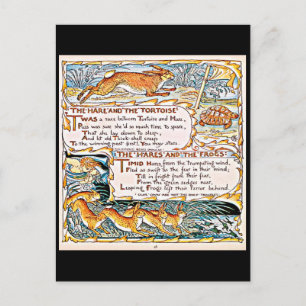 THE HARE AND THE TORTOISE
TWAS a race between Tortoise and Hare,
Puss was sure she'd so much time to spare,
That she lay down to sleep,
And let old Thick-shell creep
To the winning post first! You may stare.
THE HARES AND THE FROGS
TIMID Hares, from the trumpeting wind,
Fled as swift as the fear in their mind;
Till in fright from their fear,
From the green sedges near,
Leaping Frogs left their terror behind.